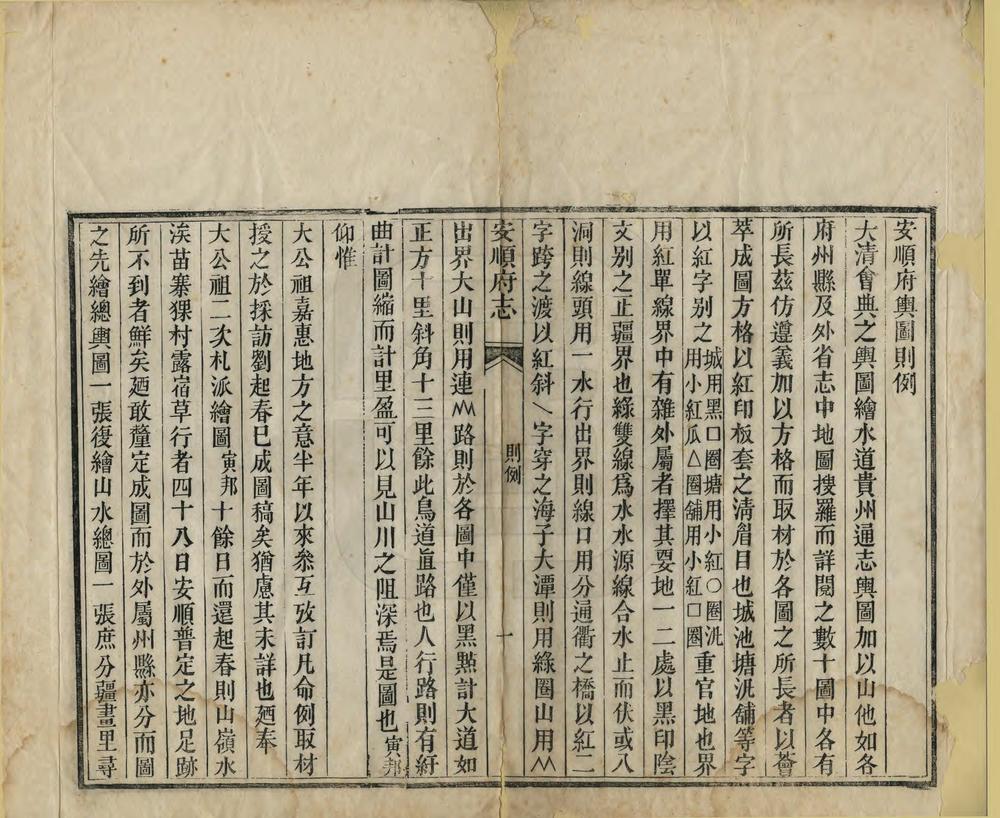 安順府輿圖則例
大清會典之輿圖繪水道貴州通志輿圖加以山他如各
府州縣及外省志中地圖搜羅而詳閱之數十圖中各有
所長茲仿遵義加以方格而取材於各圖之所長者以薈
萃成圖方格以紅印板套之清眉目也城池塘汛舖等字
以紅字别之城用黑口圈塘用小紅○圈汛
用小紅瓜△圈舖用小紅口圈重官地也界
用紅單線界中有雜外屬者擇其要地一二處以黑印陰
文别之正疆界也綠雙線爲水水源線合水止而伏或入
洞則線頭用一水行出界則線口用分通衢之橋以紅二
字跨之渡以紅斜乀字穿之海子大潭則用綠圈山用
安順府志
則例
一
出界大山則用連路則於各圖中僅以黑點計大道如
正方十里斜角十三里餘此鳥道直路也人行路則有紆
曲計圖縮而計里盈可以見山川之阻深焉是圖也寅邦
仰惟
大公祖嘉惠地方之意半年以來叅互攷訂凡命例取材
授之於採訪劉起春巳成圖稿矣猶慮其未詳也廼奉
大公祖二次札派繪圖寅邦十餘日而還起春則山嶺水
涘苗寨猓村露宿草行者四十八日安順普定之地足跡
所不到者鮮矣廼敢釐定成圖而於外屬州縣亦分而圖
之先繪總輿圖一張復繪山水總圖一張庶分疆畫里尋